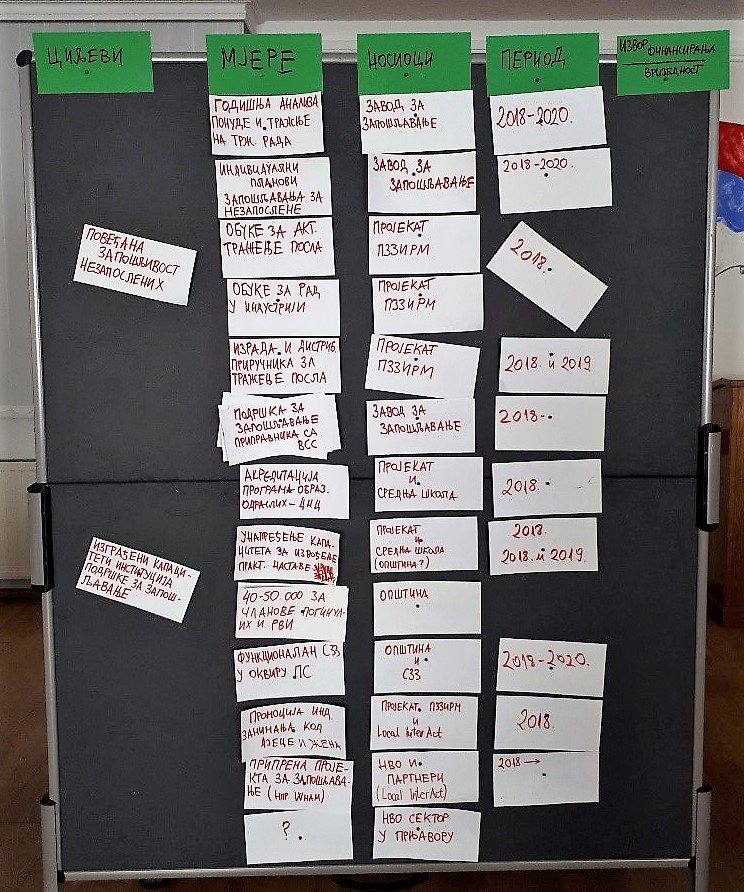 ЦИЉЕВИ
МЈЕРЕ
НОСИОЦИ
ПЕРИОД
ИЗВОР ФИНАНСИРАЊА
ВРИЈЕДНОСТ
ГОДИШЊА АНАЛИЗА
ПОНУДЕ И ТРАЖЊЕ
НА ТРЖ. РАДА
ЗАВОД ЗА
ЗАПОШЉАВАЊЕ
2018-2020.
ИНДИВИДУАЛНИ
ПЛАНОВИ
ЗАПОШЉАВАЊА ЗА
НЕЗАПОСЛЕНЕ
ЗАВОД ЗА
ЗАПОШЉАВАЊЕ
2018-2020.
ПОВЕЋАНА
ЗАПОШЉИВОСТ
НЕЗАПОСЛЕНИХ
ОБУКЕ ЗА АКТ.
ТРАЖЕЊЕ ПОСЛА
ПРОЈЕКАТ
ПЗЗИРМ
2018.
ОБУКЕ ЗА РАД
У ИНДУСТРИЈИ
ПРОЈЕКАТ
ПЗЗИРМ
ИЗРАДА И ДИСТРИБ.
ПРИРУЧНИКА ЗА
ТРАЖЕЊЕ ПОСЛА
ПРОЈЕКАТ
ПЗЗИРМ
2018. и 2019
ПОДРШКА ЗА
ЗАПОШЉАВАЊЕ
ПРИПРАВНИКА СА
ВСС
ЗАВОД ЗА
ЗАПОШЉАВАЊЕ
2018-
АКРЕДИТАЦИЈА
ПРОГРАМА ОБРАЗ.
ОДРАСЛИХ - ЦНЦ
ПРОЈЕКАТ
И
СРЕДЊА ШКОЛА
2018.
ИЗГРАЂЕНИ КАПАЦИ-
ТЕТИ ИНСТИТУЦИЈА
ПОДРШКЕ ЗА ЗАПОШ-
ЉАВАЊЕ
УНАПРЕЂЕЊЕ КАПА-
ЦИТЕТА ЗА ИЗВОЂЕЊЕ
ПРАКТ. НАСТАВЕ
ПРОЈЕКАТ
И
СРЕДЊА ШКОЛА
(ОПШТИНА?)
2018.
2018. и 2019.
40-50.000 ЗА
ЧЛАНОВЕ ПОГИНУЛ-
ИХ И РВИ
ОПШТИНА
ФУНКЦИОНАЛАН СЗЗ
У ОКВИРУ ЛС
ОПШТИНА
И
СЗЗ
2018-2020.
ПРОМОЦИЈА ИНД.
ЗАНИМАЊА КОД
ДЈЕЦЕ И ЖЕНА
ПРОЈЕКАТ ПЗЗИРМ
и
Local InterAct
2018.
ПРИПРЕМА ПРОЈЕ-
КТА ЗА ЗАПОШЉАВА-
ЊЕ (НПР. WHAM)
НВО И
ПАРТНЕРИ
(Local InterAct)
2018 →
?
НВО СЕКТОР
У ПРЊАВОРУ